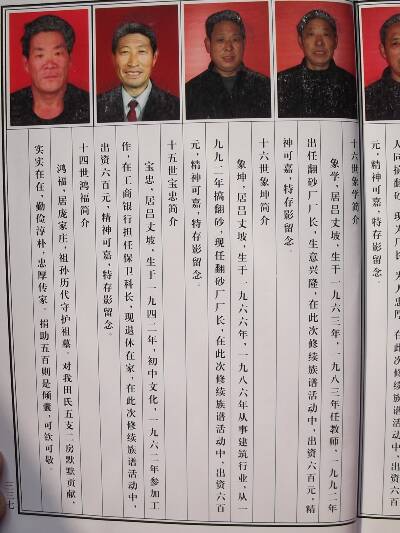 人同搞翻砂
现为厂长，为人忠厚
六百元
十六世象学简介
象学，居吕丈坡，生于一九六三年，一九八三年任教师，一九九二年
出任翻砂厂厂长，生意兴隆，在此次修续族谱活动中，出资六百元，精
神可嘉，特存影留念。
十六世象坤简介
象坤，居吕丈坡，生于一九六六年，一九八六年从事建筑行业，从一
九九二年搞翻砂，现任翻砂厂厂长，在此次修续族谱活动中，出资六百
元，精神可嘉，特存影留念。
十五世宝忠简介
宝忠，居吕丈坡，生于一九四二年，初中文化，一九六二年参加工
作，在工商银行担任保卫科长，现退休在家，在此次修续族谱活动中，
出资六百元，精神可嘉，特存影留念。
十四世鸿福简介
鸿福，居庞家庄，祖孙历代守护祖墓。对我田氏五支二房默默贡献，
实实在在，勤俭淳朴，忠厚传家。捐助五百则是倾囊，可钦可敬。
三三七